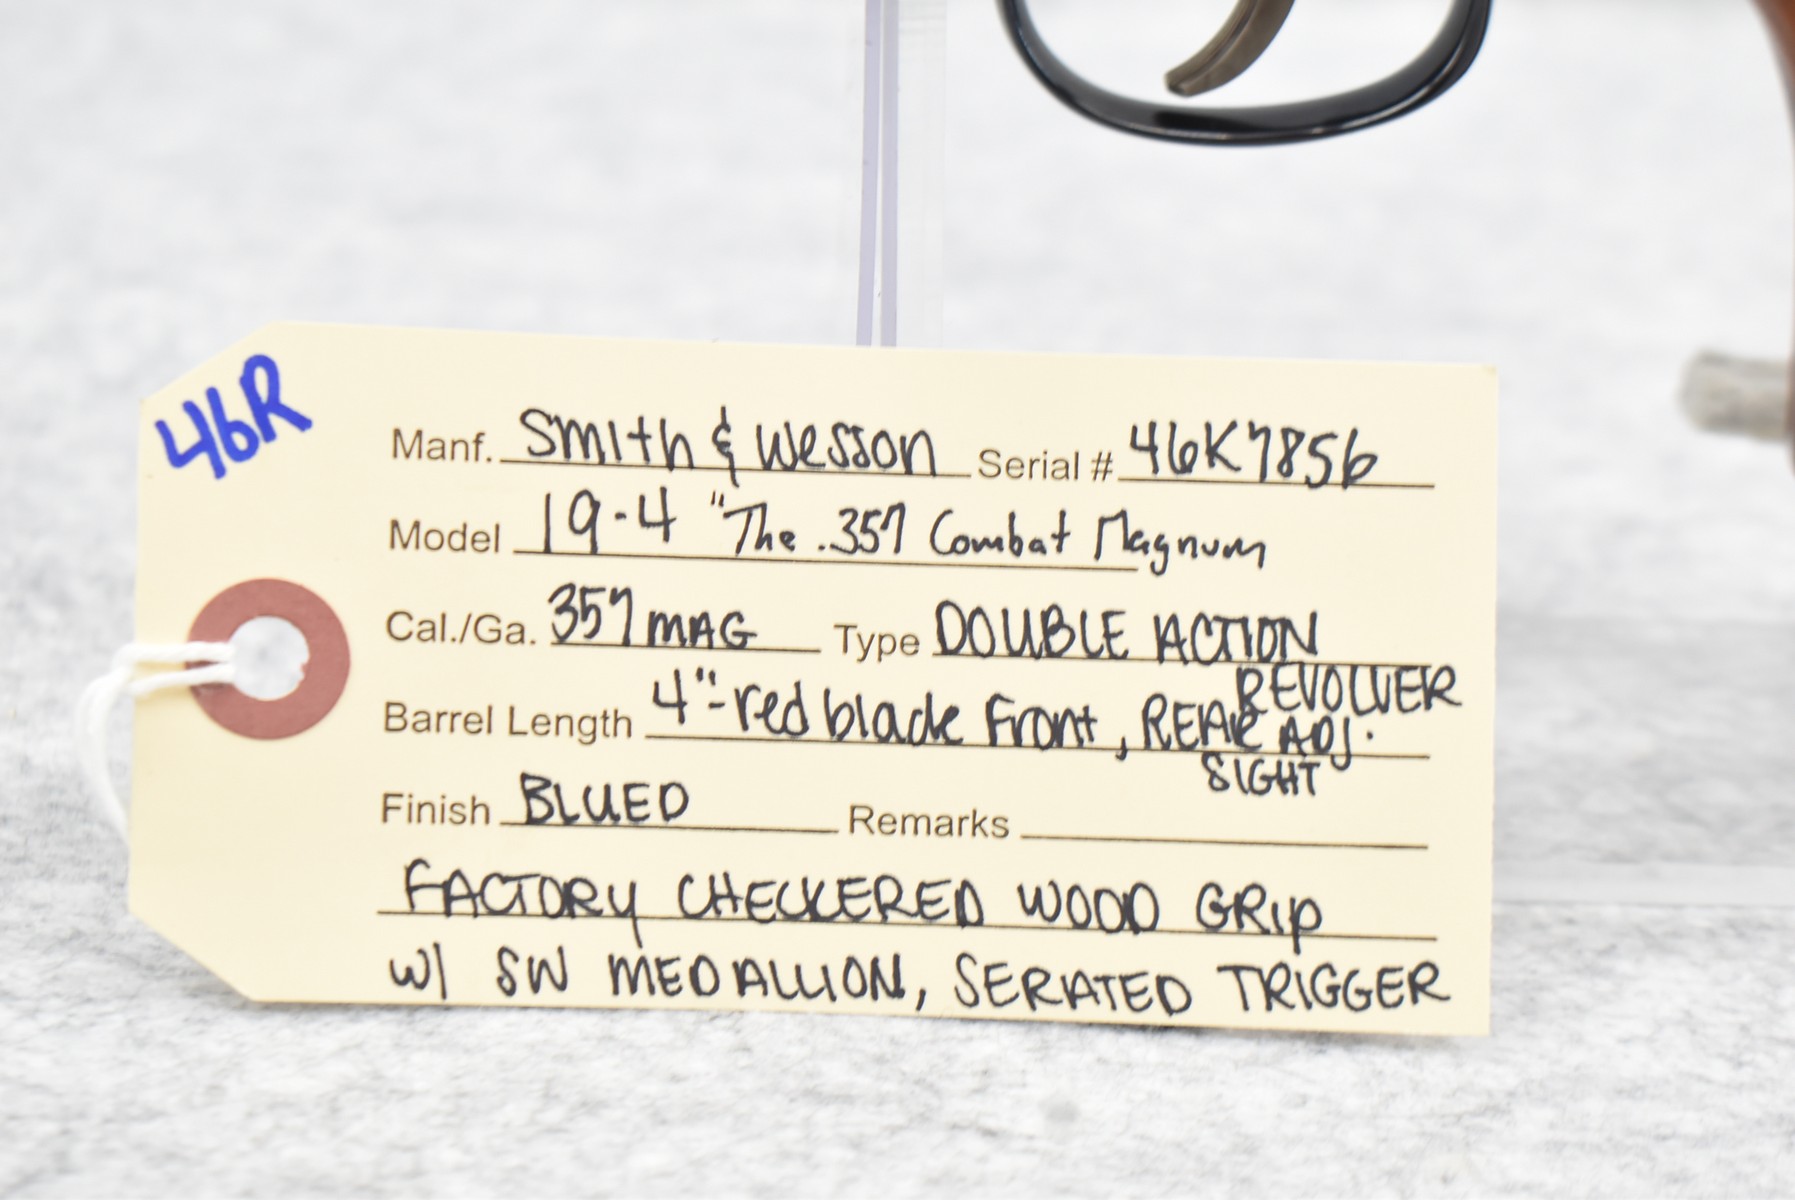 46R
Manf. Smith & Wesson Serial # 46K7856
Model 19-4 "The .357 Combat Magnum
Cal./Ga. 357 MAG Type DOUBLE ACTION
REVOLVER
Barrel Length 4"-red blade Front, REAR ADJ.
SIGHT
Finish BLUED Remarks
FACTORY CHECKERED WOOD GRIP
W/ SW MEDALLION, SERATED TRIGGER